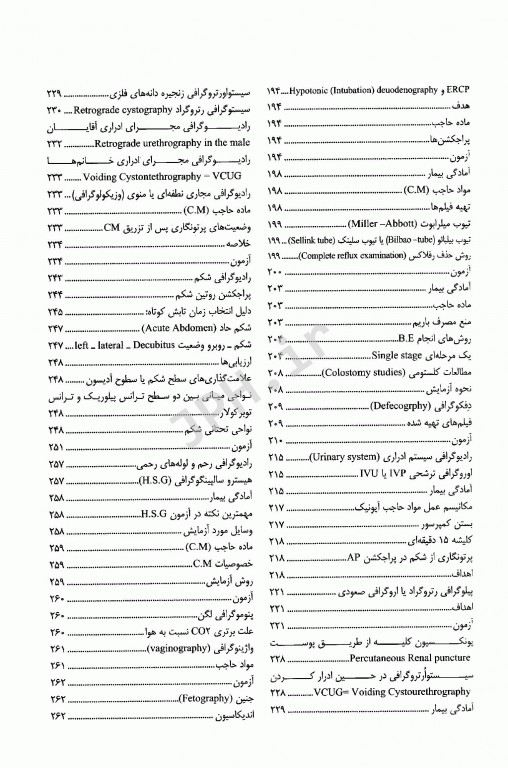 ERCP و Hypotonic (Intubation) deuodenography....۱۹۴
هدف....................۱۹۴
ماده حاجب....................۱۹۴
پراجکشن‌ها....................۱۹۴
آزمون....................۱۹۴
آمادگی بیمار....................۱۹۸
مواد حاجب (C.M)....................۱۹۸
تهیه فیلم‌ها....................۱۹۸
تیوب میلرابوت (Miller –Abbott)....................۱۹۹
تیوب بیلبائو (Bilbao –tube) یا تیوب سلینک (Sellink tube)...۱۹۹
روش حذف رفلاکس (Complete reflux examination)....۱۹۹
آزمون....................۲۰۰
آمادگی بیمار....................۲۰۳
ماده حاجب....................۲۰۳
منع مصرف باریم....................۲۰۳
روش‌های انجام B.E....................۲۰۴
یک مرحله‌ای Single stage....................۲۰۴
مطالعات کلستومی (Colostomy studies)....................۲۰۸
نحوه آزمایش....................۲۰۸
دفکوگرافی (Defecogrphy)....................۲۰۹
فیلم‌های تهیه شده....................۲۰۹
آزمون....................۲۱۰
رادیوگرافی سیستم ادراری (Urinary system)....................۲۱۵
اوروگرافی ترشحی IVP یا IVU....................۲۱۵
آمادگی بیمار....................۲۱۵
مکانیسم عمل مواد حاجب آیونیک....................۲۱۷
بستن کمپرسور....................۲۱۷
کلیشه ۱۵ دقیقه‌ای....................۲۱۸
پرتونگاری از شکم در پراجکشن AP....................۲۱۸
اهداف....................۲۱۸
پیلوگرافی رتروگراد یا اروگرافی صعودی....................۲۲۱
اهداف....................۲۲۱
آزمون....................۲۲۱
پونکسیون کلیه از طریق پوست
Percutaneous Renal puncture....................۲۲۸
سیستوأرتروگرافی در حین ادرار کردن
VCUG= Voiding Cystourethrography..........۲۲۸
آمادگی بیمار....................۲۲۹
سیستواورتروگرافی زنجیره دانه‌های فلزی....................۲۲۹
سیستوگرافی رتروگراد Retrograde cystography....۲۳۰
رادیوگرافی مجرای ادراری آقایان
Retrograde urethrography in the male..........۲۳۲
رادیوگرافی مجرای ادراری خانم‌ها
Voiding Cystontethrography = VCUG..........۲۳۳
رادیوگرافی مجاری نطفه‌ای یا منوی (وزیکولوگرافی)...۲۳۳
ماده حاجب (C.M)....................۲۳۳
وضعیت‌های پرتونگاری پس از تزریق CM..........۲۳۳
خلاصه....................۲۳۴
آزمون....................۲۳۴
رادیوگرافی شکم....................۲۴۲
پراجکشن روتین شکم....................۲۴۴
دلیل انتخاب زمان تابش کوتاه:....................۲۴۵
شکم حاد (Acute Abdomen)....................۲۴۷
شکم ـ روبرو وضعیت left ـ lateral ـ Decubitus....۲۴۷
ارزیابی‌ها....................۲۴۸
علامت‌گذاری‌های سطح شکم یا سطوح آدیسون....۲۴۸
نواحی میانی بین دو سطح ترانس پیلوریک و ترانس
توبرکولار....................۲۴۸
نواحی تحتانی شکم....................۲۴۸
آزمون....................۲۵۱
رادیوگرافی رحم و لوله‌های رحمی....................۲۵۷
هیسترو سالپینگوگرافی (H.S.G)....................۲۵۷
آمادگی بیمار....................۲۵۸
مهمترین نکته در آزمون H.S.G....................۲۵۸
وسایل مورد آزمایش....................۲۵۸
ماده حاجب (C.M)....................۲۵۹
خصوصیات C.M....................۲۵۹
روش آزمایش....................۲۵۹
آزمون....................۲۶۰
پنوموگرافی لگن....................۲۶۰
علت برتری CO۲ نسبت به هوا....................۲۶۰
واژینوگرافی (vaginography)....................۲۶۱
مواد حاجب....................۲۶۱
آزمون....................۲۶۲
جنین (Fetography)....................۲۶۲
اندیکاسیون....................۲۶۲